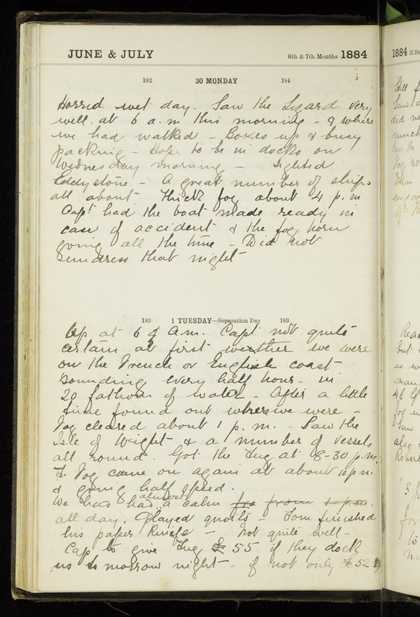 JUNE & JULY 6th & 7th Months 1884
182 30 MONDAY 184
Horrid wet day. Saw the Lizard very
well at 6 a.m this morning - & where
we had walked - Boxes up & busy
packing - hope to be in docks on
Wednesday morning - Sighted
Eddystone - A great number of ships
all about - Thick fog about 4 p.m
Capt had the boat made ready in
case of accident & the fog horn
going all the time - Did not
undress that night
183 1 TUESDAY 183
Up at 6 of a.m. Capt not quite
certain at first whether we were
on the French or English coast -
Sounding every half hour - in
20 fathoms of water - After a little
time found out where we were -
Fog cleared about 1 p.m. - Saw the
Isle of Wight & a number of vessels
all round. Got the Tug at 8-30 p.m.
Fog came on again at about 10 p.m.
& going half speed.
We have had a calm
all day. Played quoits - Tom finished
his paper knife - Not quite well -
Capt to give Tug £55 if they dock
us to morrow night - if not only £52
1884